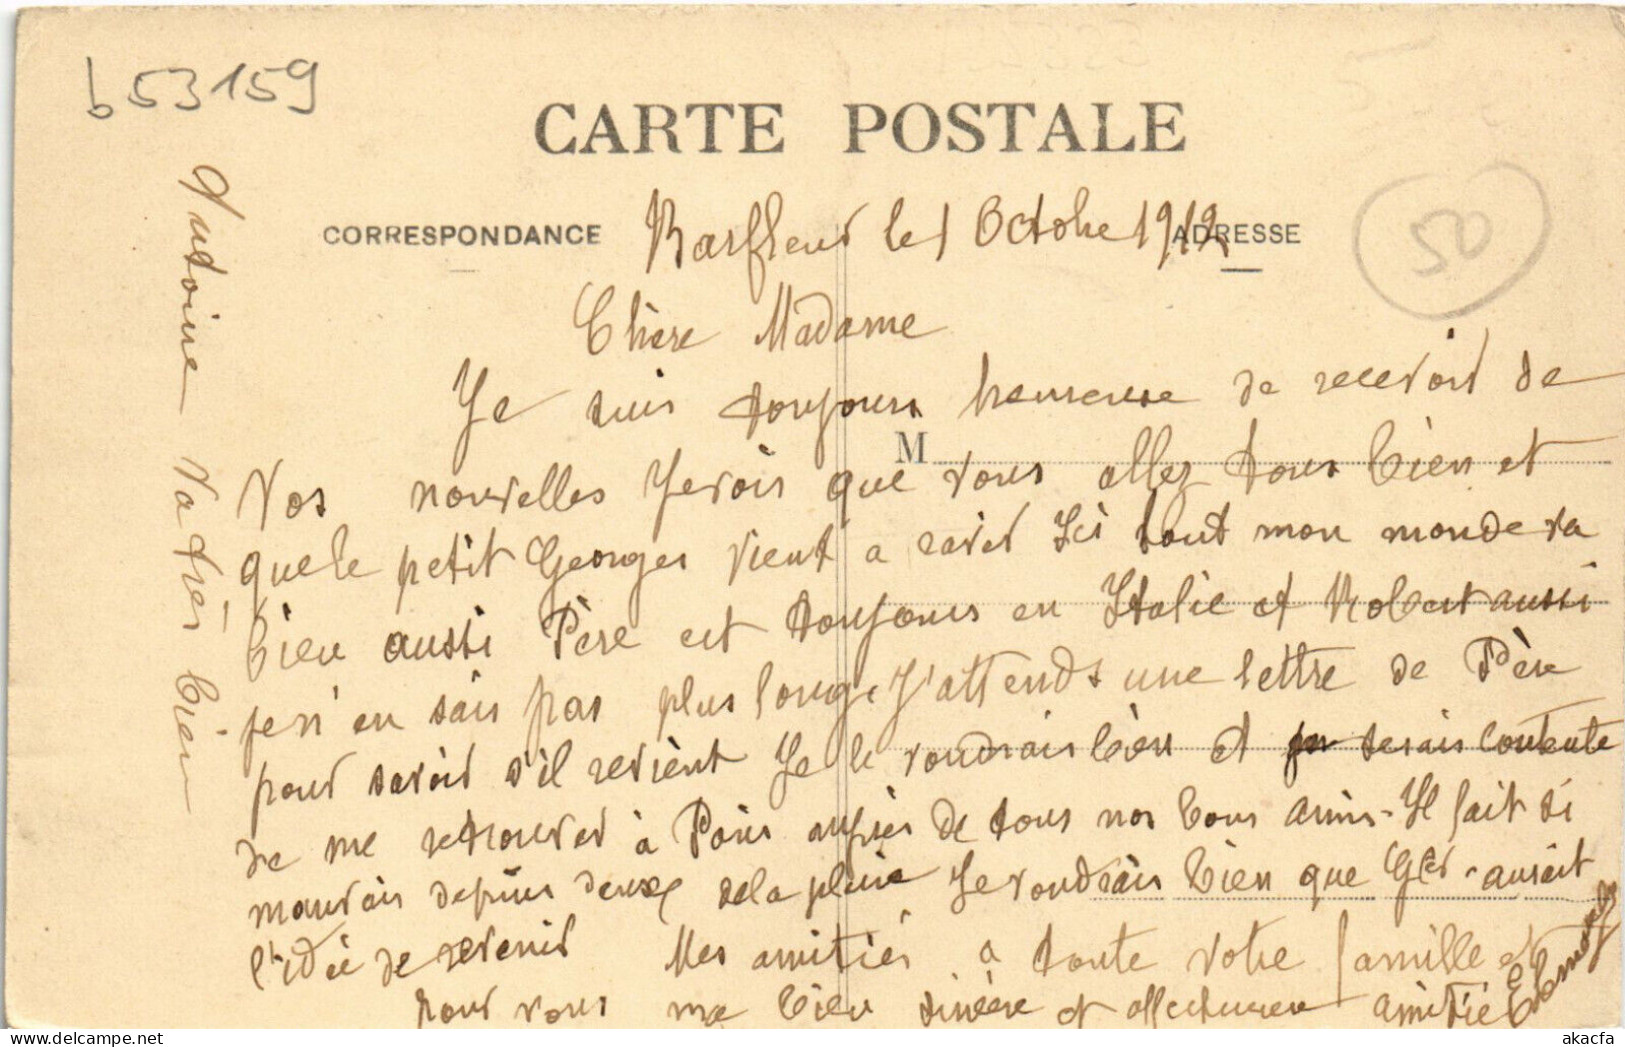 b53159
CARTE POSTALE
CORRESPONDANCE
ADRESSE
50
Barfleur le 1 Octobre 1912
Chère Madame
Je suis toujours heureuse de recevoir de
M
Vos nouvelles Je vois que vous allez tous bien et
que le petit Georges vient a ravir Ici tout mon monde va
bien aussi Père est toujours en Italie et Robert aussi
je n'en sais pas plus long. J'attends une lettre de Père
pour savoir s'il revient Je le voudrais bien et je serais contente
de me retrouver à Paris auprès de tous nos bons amis - Il fait si
mauvais depuis deux de la pluie Je voudrais bien que aurait
l'idée de revenir Mes amitiés a toute votre famille et
pour vous ma bien sincère et affectueuse amitié
Antoine va très bien
akacfa